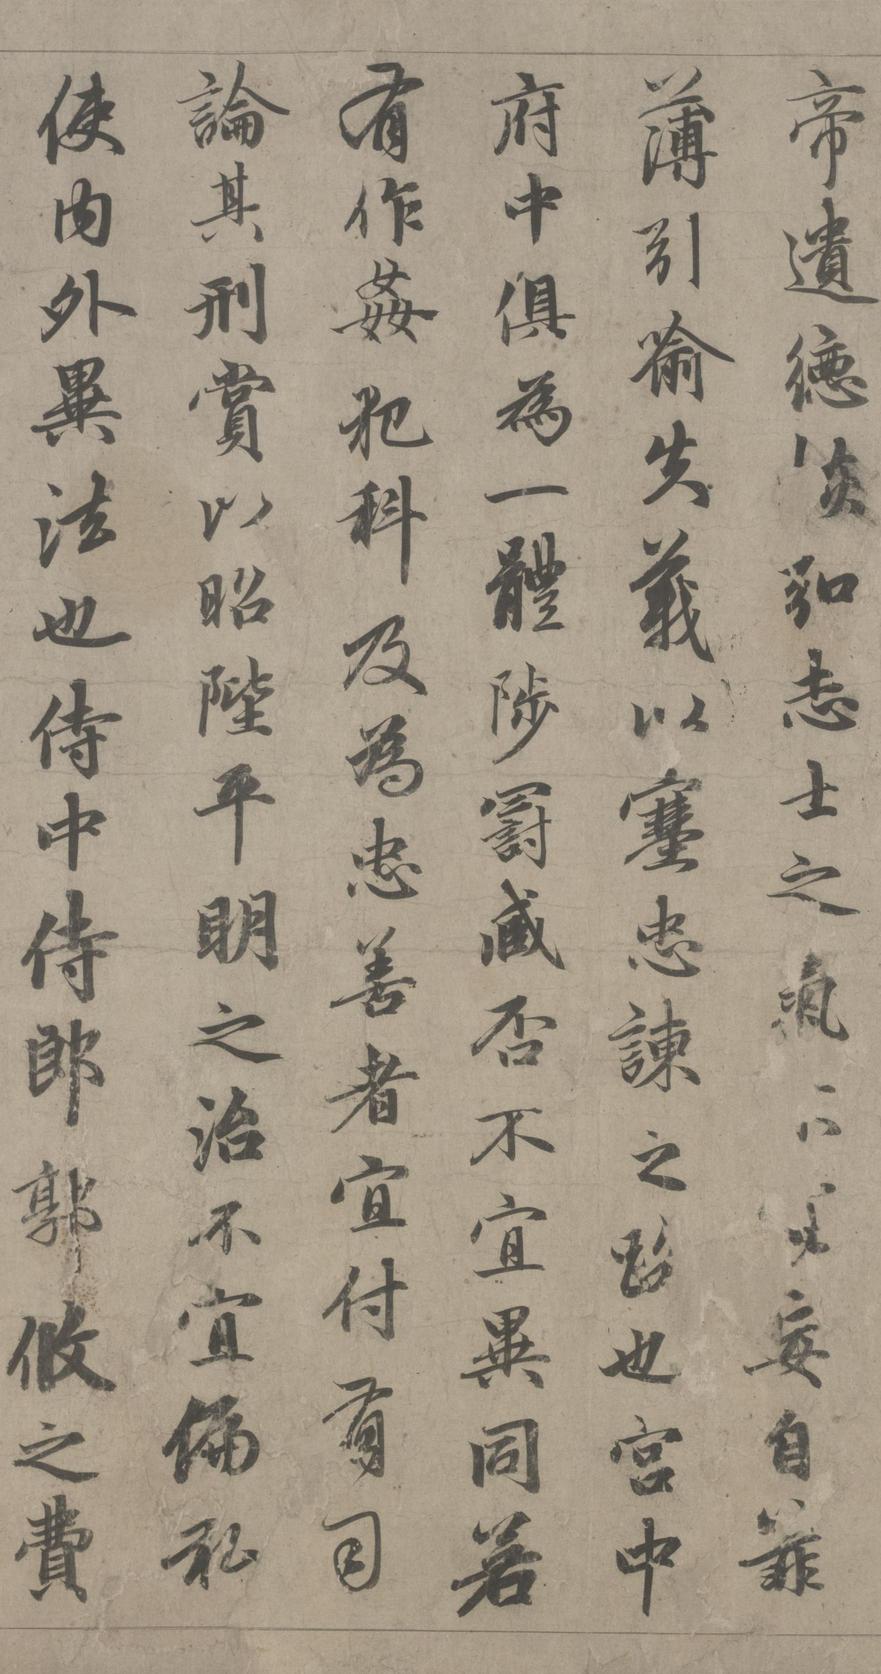 帝遺德恢弘志士之氣不妄自菲
薄引喻失義以塞忠諫之路也宮中
府中俱為一體陟罰臧否不宜異同若
有作姦犯科及為忠善者宜付有司
論其刑賞以昭陛平明之治不宜偏私
使內外異法也侍中侍郎郭攸之費